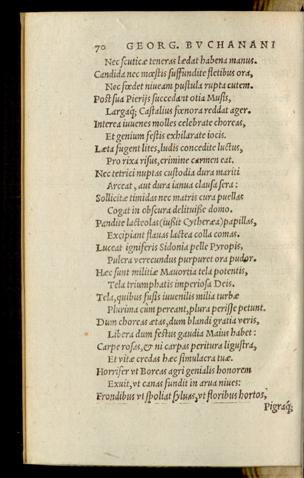 70 GEORG. BVCHANANI
Nec scuticæ teneras lædat habena manus.
Candida nec mœstis suffundite fletibus ora,
Nec fœdet niueam pustula rupta cutem.
Post sua Pierijs succedant otia Musis,
Largaq́; Castalius fœnora reddat ager.
Interea iuuenes molles celebrate choreas,
Et genium festis exhilarate iocis.
Læta fugent lites, ludis concedite luctus,
Pro rixa risus, crimine carmen eat.
Nec tetrici nuptas custodia dura mariti
Arceat, aut dura ianua clausa sera:
Sollicitæ timidas nec matris cura puellas
Cogat in obscura delituisse domo.
Pandite lacteolas (iussit Cytheræa) papillas,
Excipiant flauas lactea colla comas.
Luceat igniferis Sidonia pelle Pyropis,
Pulcra verecundus purpuret ora pudor.
Hæc sunt militiæ Mauortia tela potentis,
Tela triumphatis imperiosa Deis.
Tela, quibus fusis iuuenilis milia turbæ
Plurima cum pereant, plura perisse petunt.
Dum choreas ætas, dum blandi gratia veris,
Libera dum festus gaudia Maius habet:
Carpe rosas, & ni carpas peritura ligustra,
Et vitæ credas hæc simulacra tuæ.
Horrifer vt Boreas agri genialis honorem
Exuit, vt canas fundit in arua niues:
Frondibus vt spoliat syluas, vt floribus hortos,
Pigraq́;